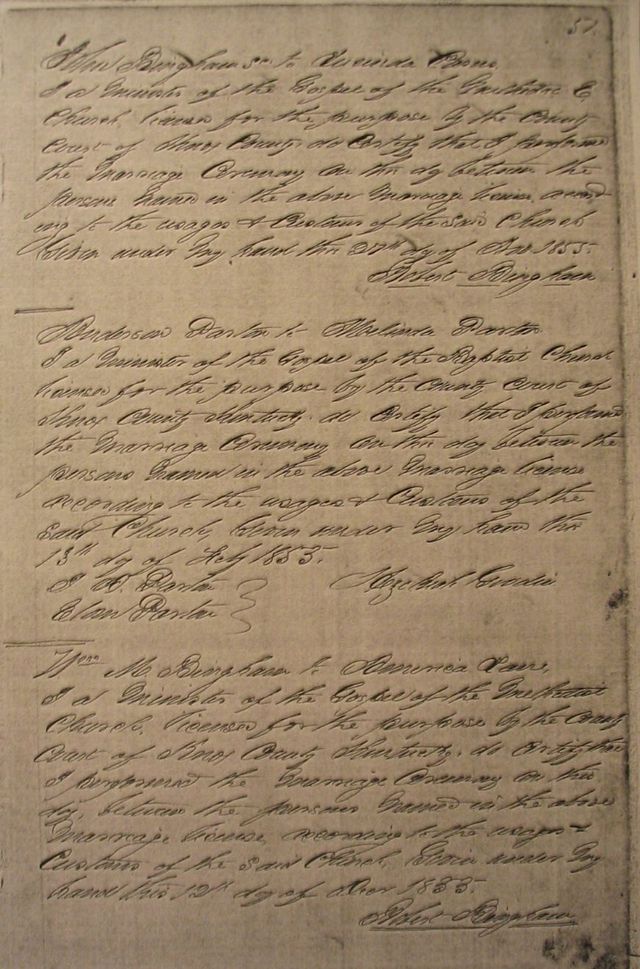 51.
John Bingham Sr to Lucinda
I a Minister of the Gospel of the Methodist E
Church, license for the purpose by the County
Court of Knox County do Certify that I performed
the Marriage Ceremony on this dy between the
persons Named in the above Marriage licence accord
ing to the usages & Customs of the said Church
Given under My hand this 27th dy of Nov 1855.
Robert Bingham
Anderson Partin to Malinda Partin
I a Minister of the Gospel of the Baptist Church
license for the purpose by the County Court of
Knox County Kentucky. do Certify that I performed
the Marriage Ceremony on this dy between the
persons Named in the above Marriage license
according to the usages & Customs of the
said Church, Given under My hand this
13th dy of Feby 1855.
Partin
Partin
Wm M Bingham to America
I a Minister of the Gospel of the Methodist
Church, license for the purpose by the County
Court of Knox County Kentucky. do Certify that
I performed the Marriage Ceremony on this
dy, between the persons Named in the above
Marriage license, according to the usages &
Customs of the said Church, Given under My
hand this 12th dy of 1855.
Robert Bingham